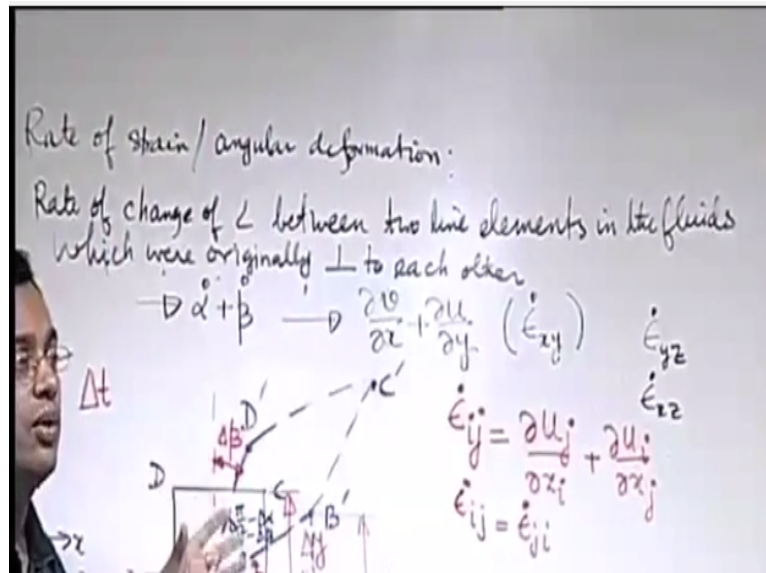 Rate of strain / angular deformation:
Rate of change of ∠ between two line elements in the fluids
which were originally ⊥ to each other
→ α̇ + β̇ → ∂v/∂x + ∂u/∂y (ε̇xy) ε̇yz
ε̇xz
Δt
D' C'
Δβ
ε̇ij = ∂uj/∂xi + ∂ui/∂xj
D C B'
ε̇ij = ε̇ji
Δy
x